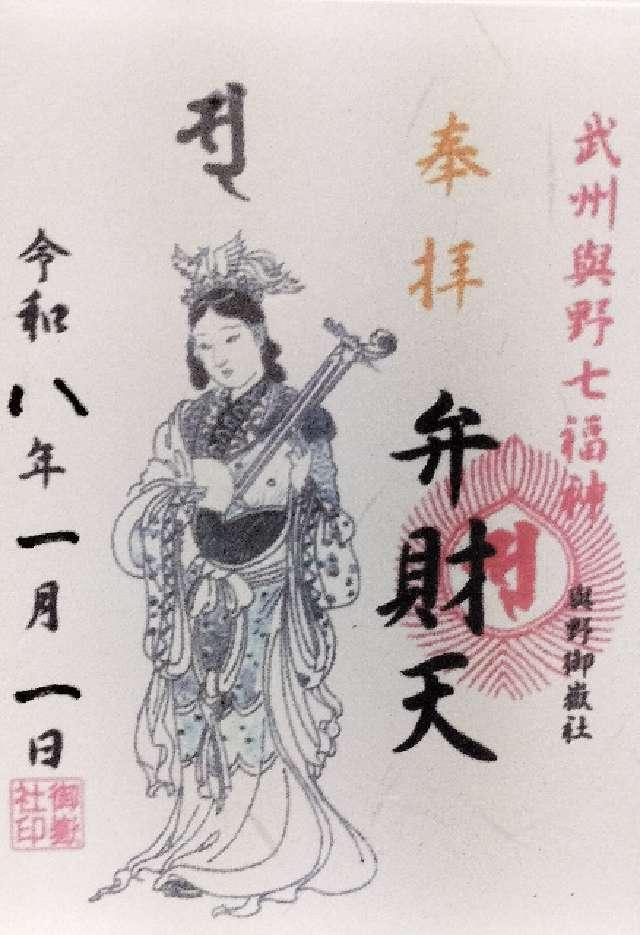 武州與野七福神
與野御嶽社
奉拝
弁財天
令和八年一月一日
御嶽
社印